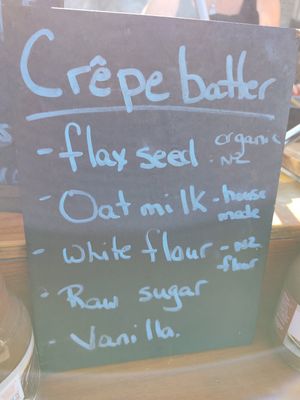 Crêpe batter
- flax seed organic NZ
- Oat milk - house made
- white flour - NZ flour
- Raw sugar
- Vanilla.